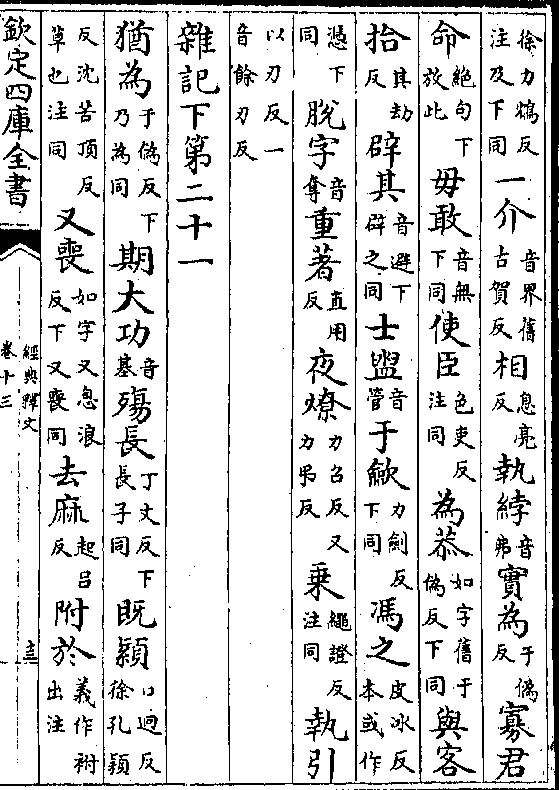 徐力鴆反注及下同一介音界舊古賀反相息亮反執綍音弗實為于偽反寡君
命絕句下放此毋敢音無下同使臣色吏反注同為恭如字舊于偽反下同與客
抬其劫反辟其音避下辟之同士盥音管于斂力劍反下同馮之皮冰反本或作
憑下同脫字音奪重著直用反夜燎力召反又力弔反乘繩證反注同執引
以刃反一音餘刃反
雜記下第二十一
猶為于偽反下乃為同期大功音基殤長丁丈反下長子同既顈口迥反徐孔穎
反沈苦頂反草也注同又喪如字又息浪反下又喪同去麻起呂反附於義作祔出注
欽定四庫全書
經典釋文
卷十三